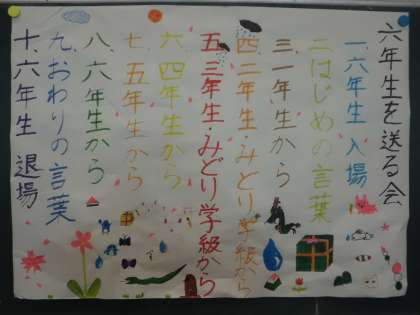 六年生を送る会
一、六年生 入場
二、はじめの言葉
三、一年生から
四、二年生・みどり学級から
五、三年生・みどり学級から
六、四年生から
七、五年生から
八、六年生から
九、おわりの言葉
十、六年生 退場